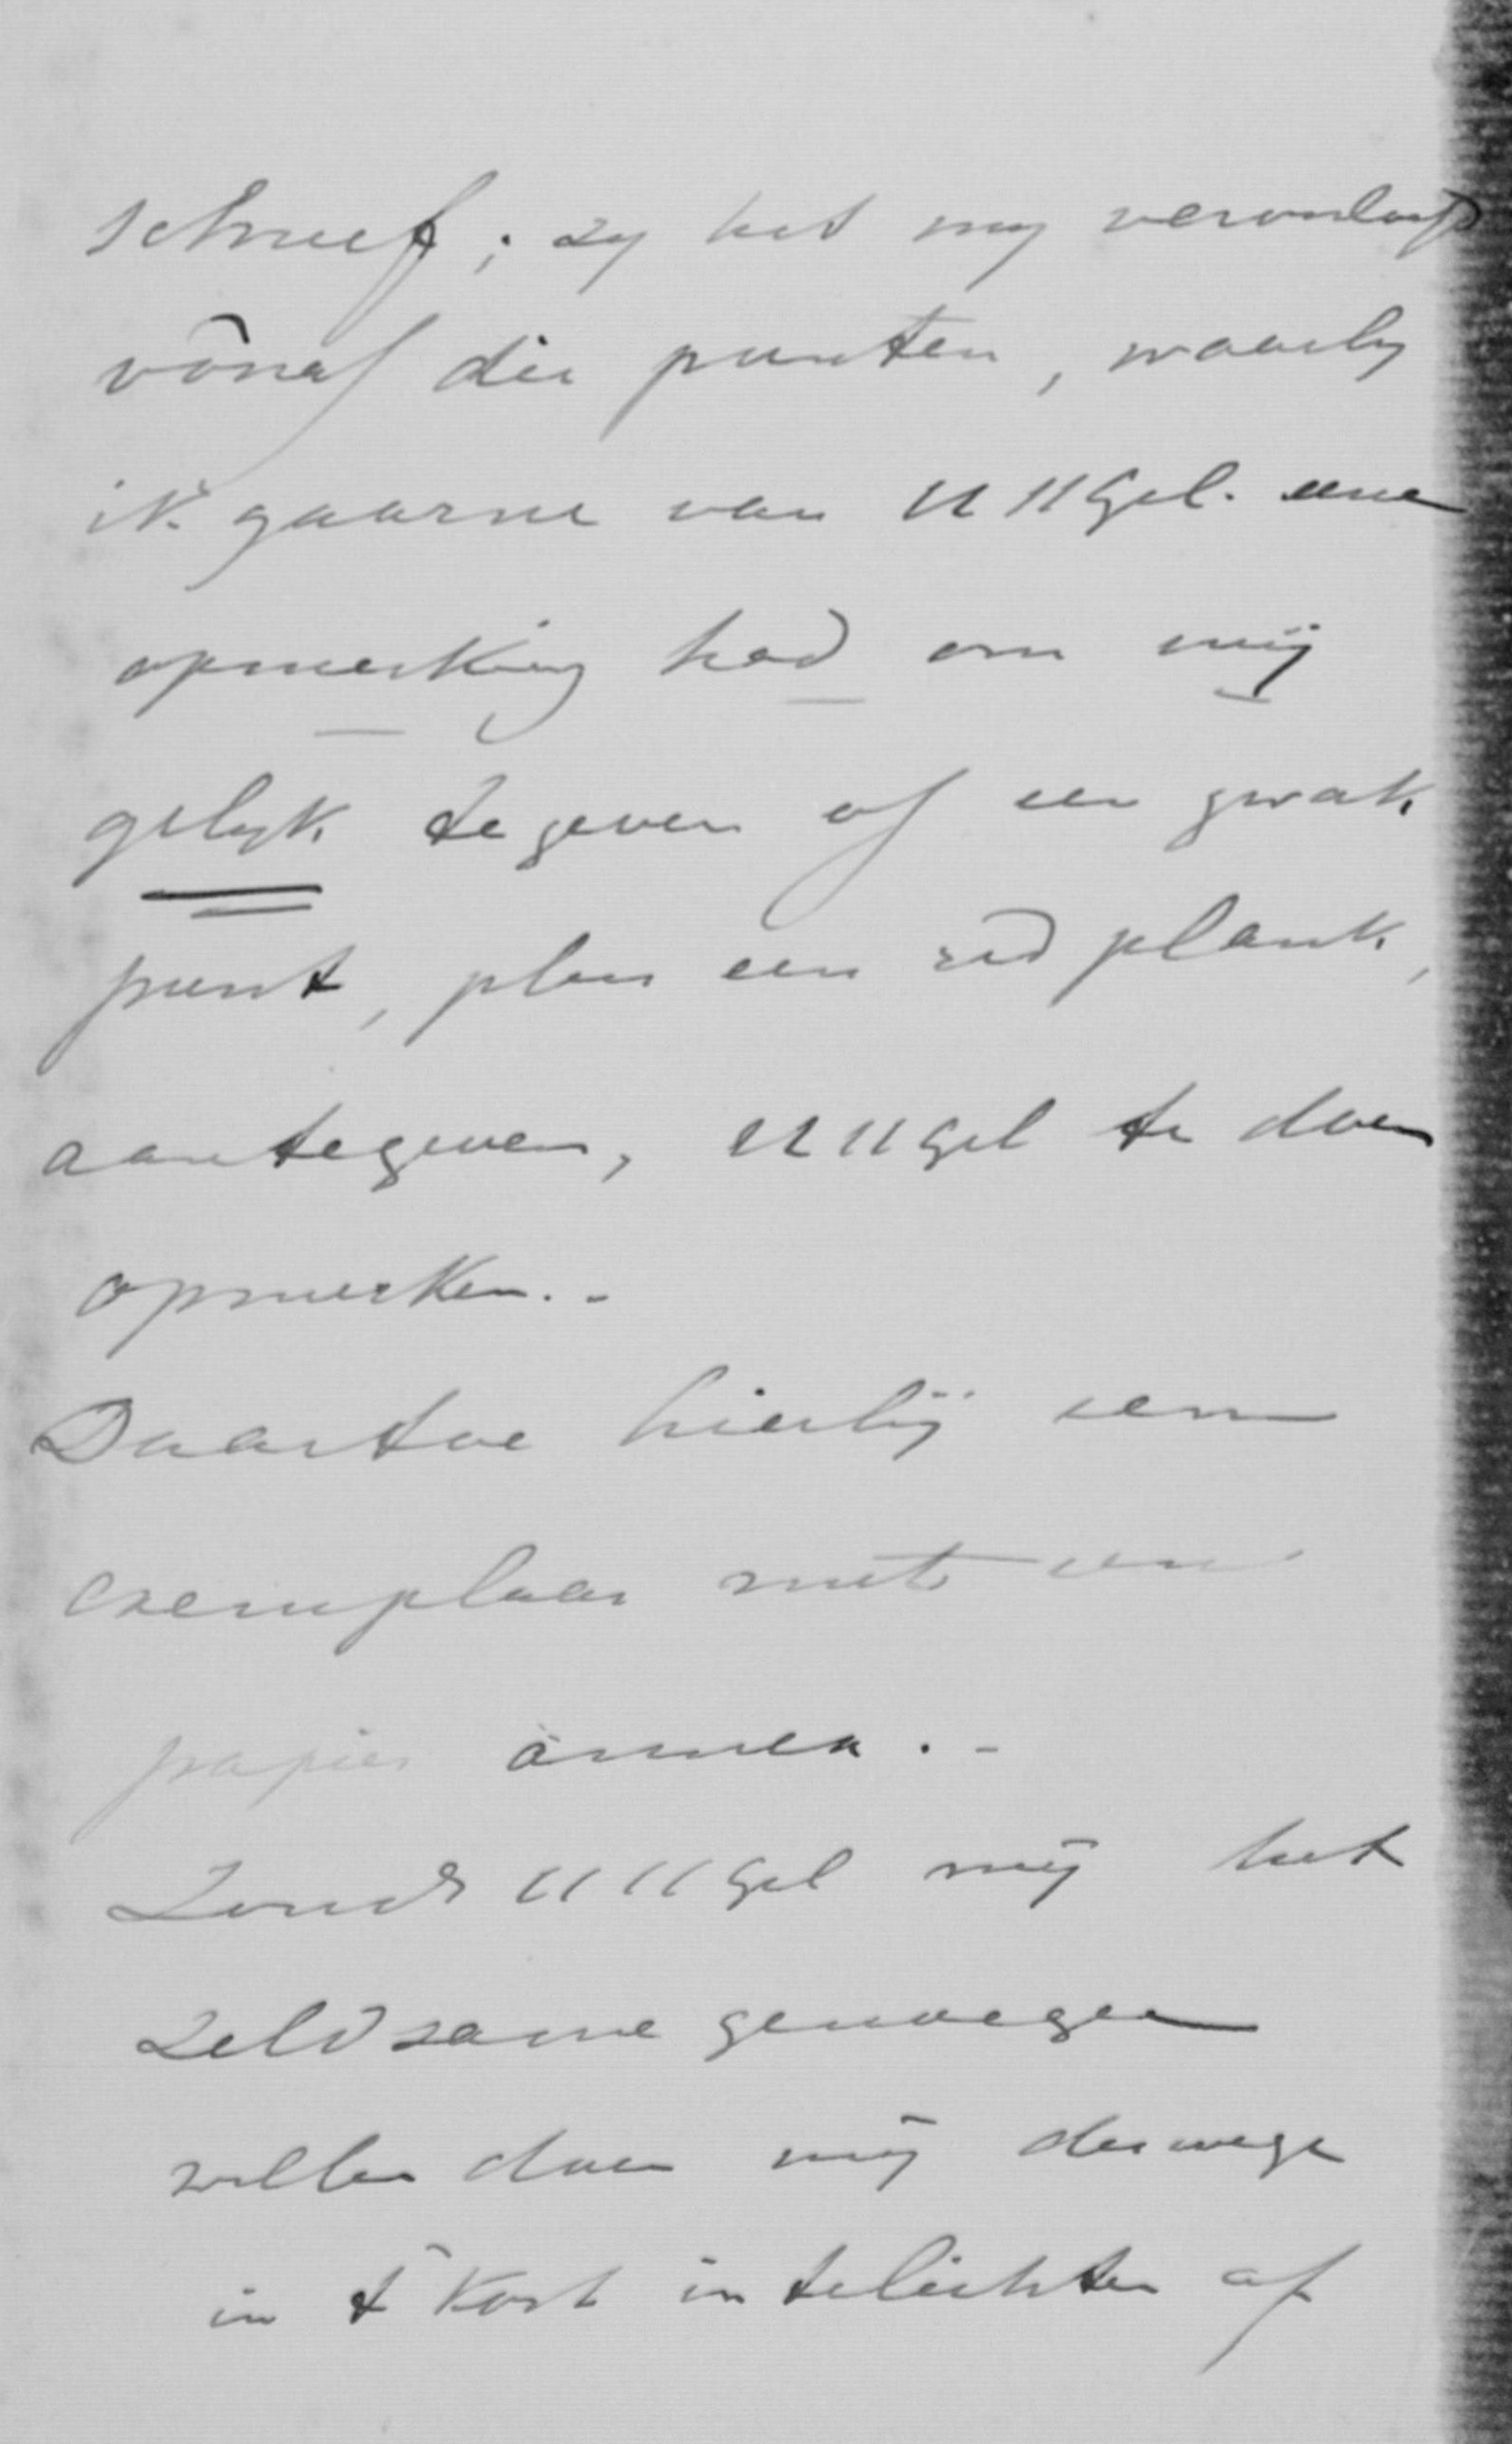 schreef; zy het my veroorloofd
vôraf die punten, waarby
ik gaarne van UUGel. eene
opmerking had om mij
gelyk te geven of een zwak
punt, plus een red plank,
aantegeven, UUGel te doen
opmerken. -
Daartoe hierbij een
exemplaar met een
papier
Zoudt UUGel mij het
zeldzame genoegen
willen doen mij deswege
in 't Kort intelichten af